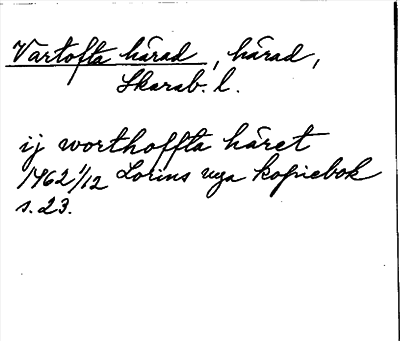 Vartofta härad, härad,
Skarab. l.
ij worthoffta häret
1462 1/12 Lorins nya kopiebok
s. 23.